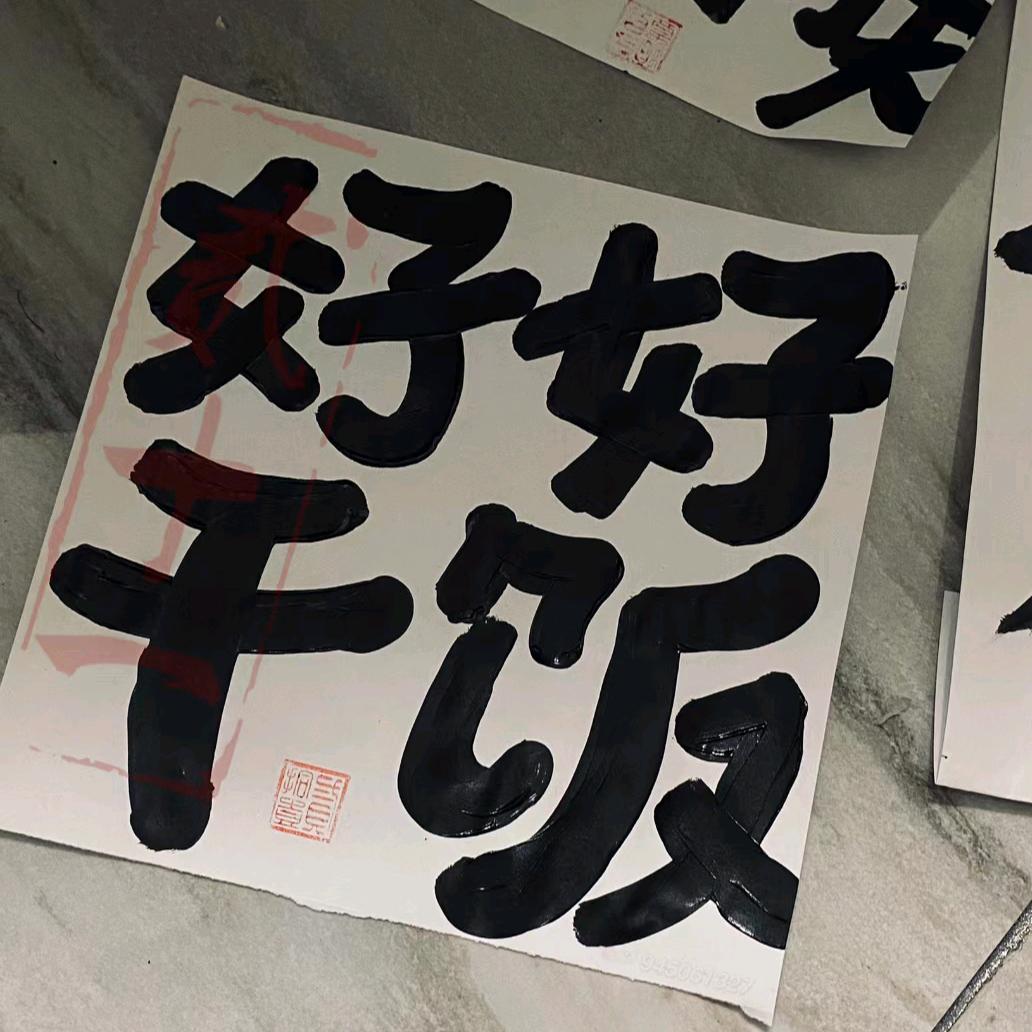 好好
干饭
945061327